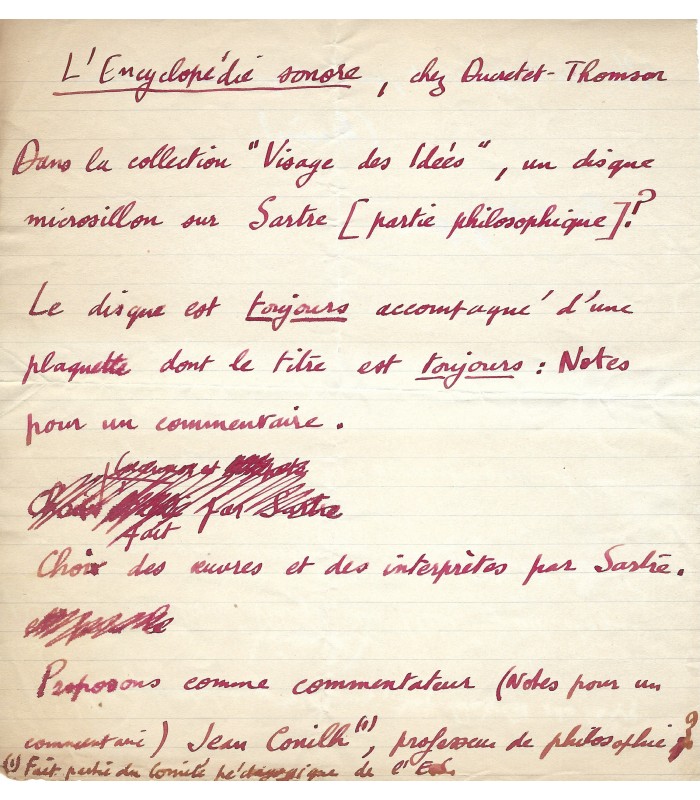 L'Encyclopédie sonore, chez Ducretet-Thomson
Dans la collection "Visage des Idées", un disque
microsillon sur Sartre [partie philosophique].?
Le disque est toujours accompagné d'une
plaquette dont le titre est toujours : Notes
pour un commentaire.
Choix par Sartre
fait
Choix des œuvres et des interprètes par Sartre.
Proposons comme commentateur (Notes pour un
commentaire) Jean Conilh(1), professeur de philosophie ?
(1) Fait partie du Comité pédagogique de l'E.S.